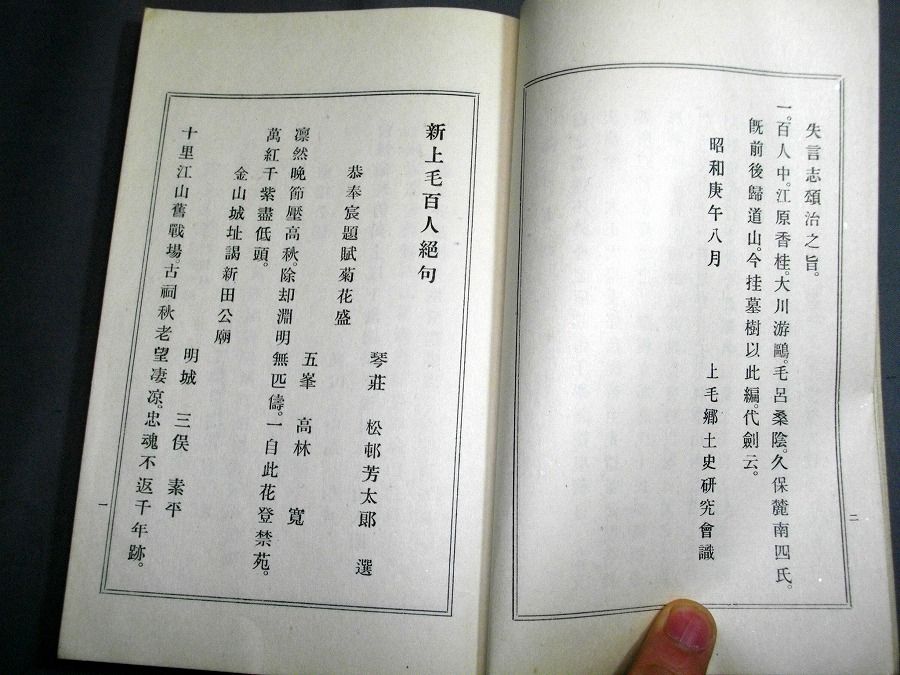 失言志頌治之旨。
一。百人中。江原香桂。大川游鷗。毛呂桑陰。久保麓南四氏。
旣前後歸道山。今挂墓樹以此編。代劍云。
昭和庚午八月
上毛鄕土史硏究會識
二
新上毛百人絕句
琴莊 松邨芳太郞 選
恭奉宸題賦菊花盛
五峯 高林 寬
凛然晩節壓高秋。除却淵明無匹儔。一自此花登禁苑。
萬紅千紫盡低頭。
金山城址謁新田公廟
明城 三俣 素平
十里江山舊戰場。古祠秋老望凄凉。忠魂不返千年跡。
一